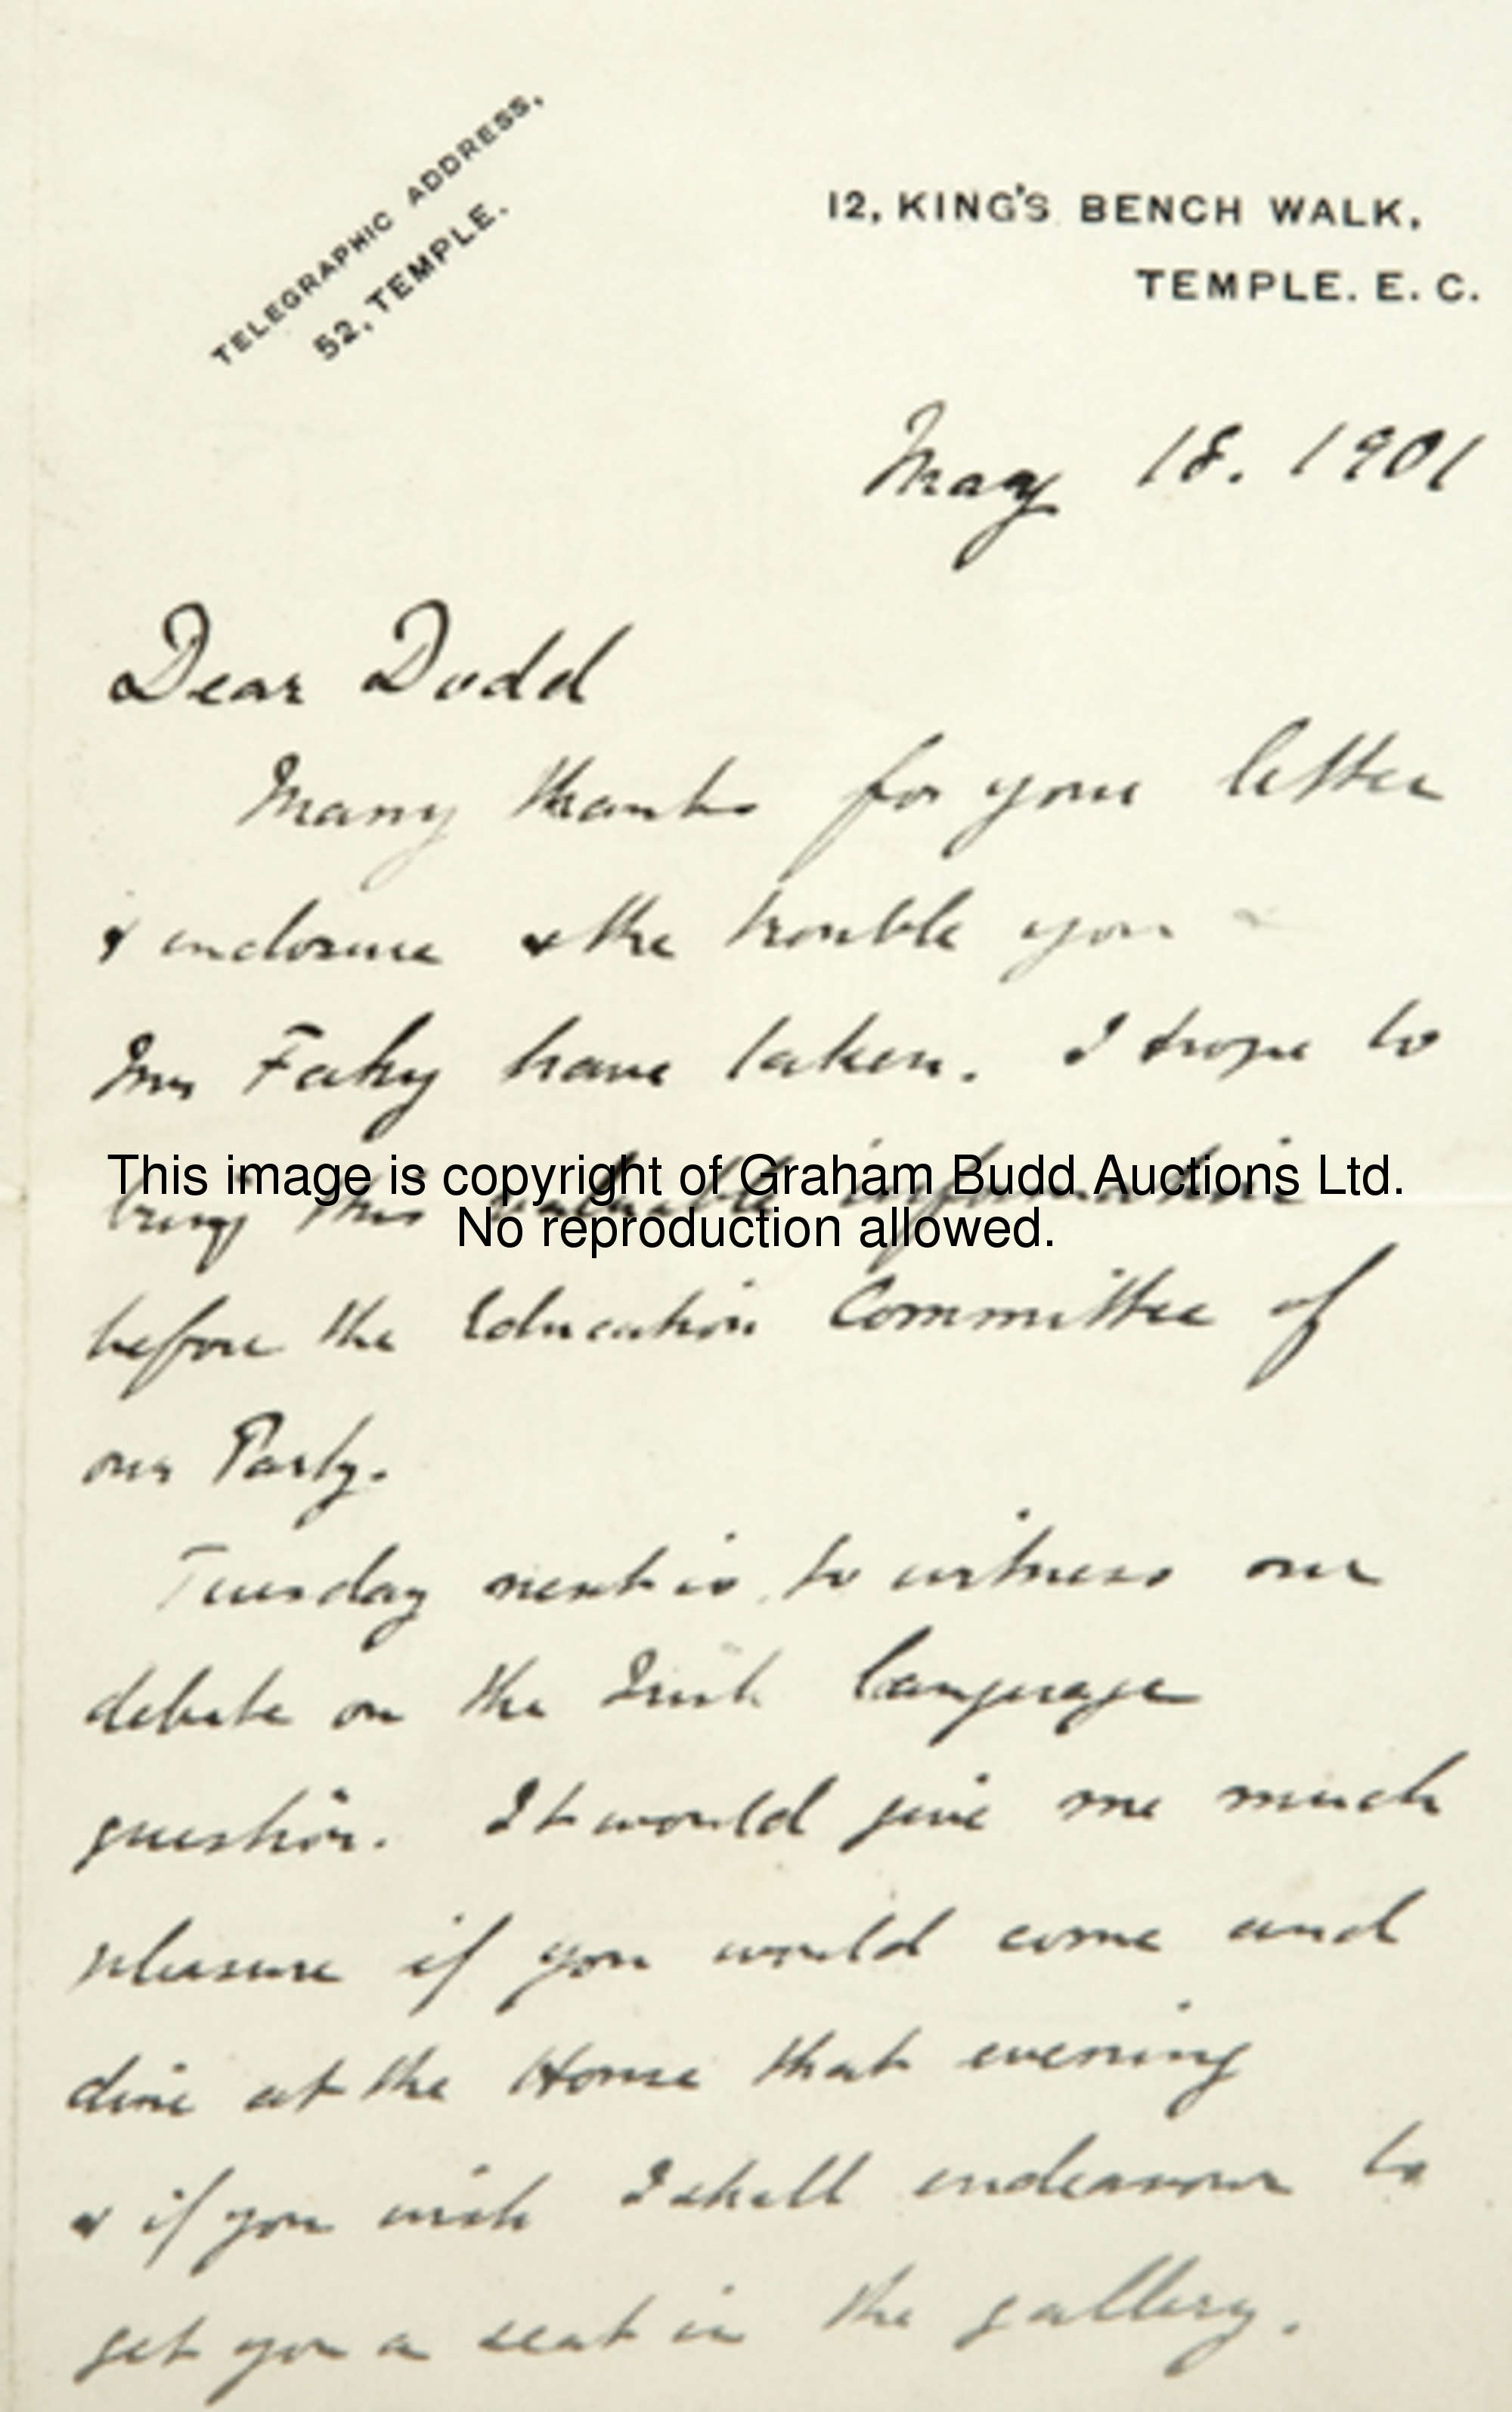 TELEGRAPHIC ADDRESS,
52, TEMPLE.
12, KING'S BENCH WALK,
TEMPLE. E. C.
May 18. 1901
Dear Dodd
Many thanks for your letter
& enclosure & the trouble you &
Mr Fahy have taken. I hope to
This image is copyright of Graham Budd Auctions Ltd.
No reproduction allowed.
bring this valuable information
before the Education Committee of
our Party.
Tuesday next is to witness our
debate on the Irish language
question. It would give me much
pleasure if you would come and
dine at the House that evening
& if you wish I shall endeavour to
get you a seat in the gallery.